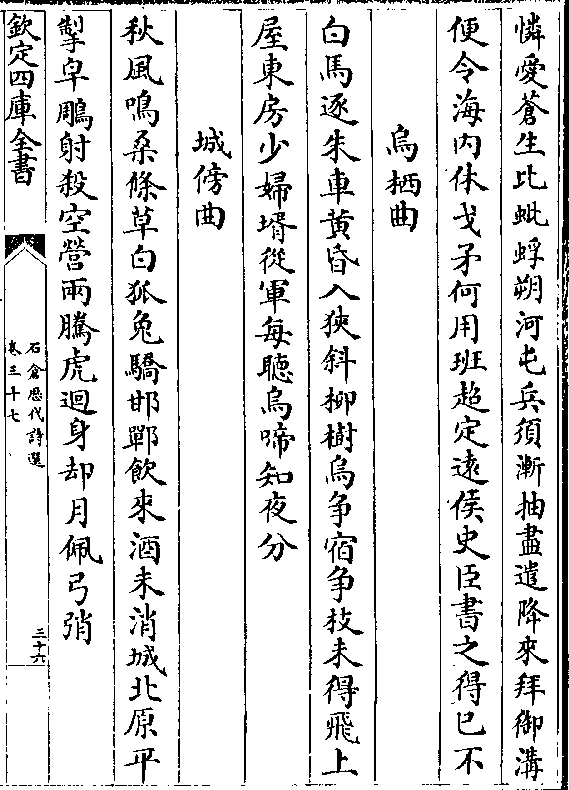 憐愛蒼生比蚍蜉朔河屯兵須漸抽盡遣降來拜御溝
便令海内休戈矛何用班超定遠侯史臣書之得已不
烏栖曲
白馬逐朱車黄昏入狹斜柳樹烏争宿争枝未得飛上
屋東房少婦壻從軍每聽烏啼知夜分
城傍曲
秋風鳴桑條草白狐兔驕邯鄲飲來酒未消城北原平
掣皁鵰射殺空營兩騰虎迴身却月佩弓弰
欽定四庫全書
石倉歴代詩選
卷三十七
三十六